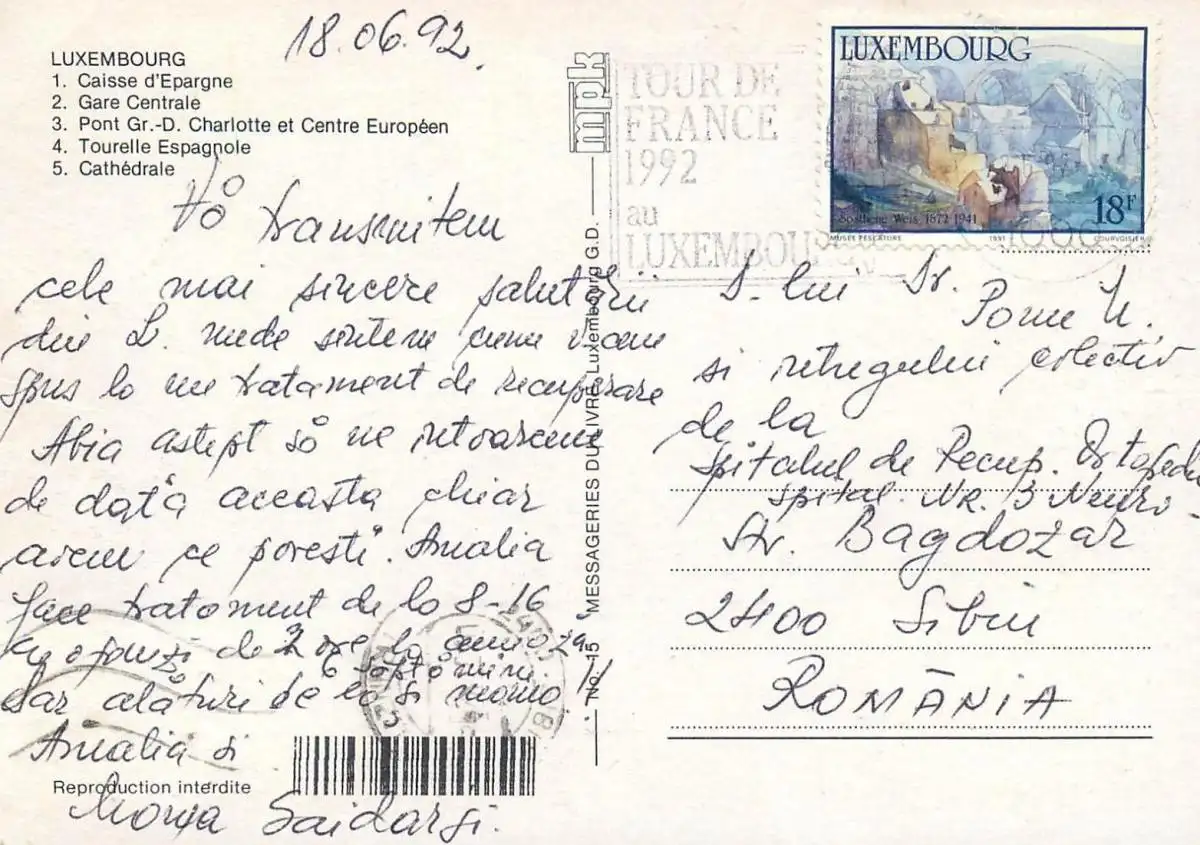 18.06.92.
LUXEMBOURG
1. Caisse d'Epargne
2. Gare Centrale
3. Pont Gr.-D. Charlotte et Centre Européen
4. Tourelle Espagnole
5. Cathédrale
Vă transmitem
cele mai sincere salutări
din L. unde sîntem cum v-am
spus la un tratament de recuperare
Abia astept să ne întoarcem
de data aceasta chiar
avem ce povesti. Amalia
face tratament de la 8-16
cu o pauză de 2 ore la amiaza
6 săptămîni
dar alături de ea si mama
Amalia si
Saidargi.
Reproduction interdite
mpk
No. 15 MESSAGERIES DU LIVRE, Luxembourg G.D.
TOUR DE
FRANCE
1992
au
LUXEMBOURG
LUXEMBOURG
Sosthène Weis, 1872-1941
18F
MUSEE PESCATORE 1991 COURVOISIER
D-lui Dr.
si întregului colectiv
de la
Spitalul de Recup. Ortopedie
Spital. NR. 3 Neuro -
Str. Bagdazar
2400 Sibiu
ROMÂNIA